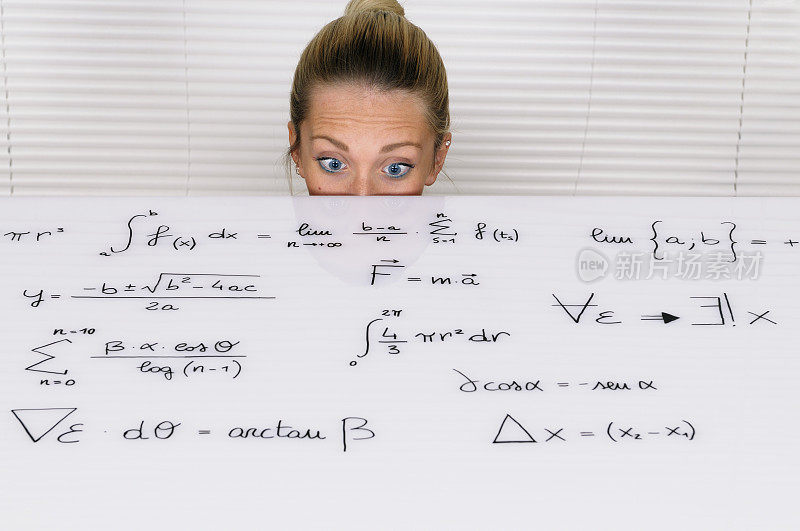 πr³ ∫ₐᵇ f(x) dx = lim n→+∞ b-a/n · Σ s=1 n f(ts) lim {a;b} = +
new 新摄图网
y = -b ± √b² - 4ac / 2a F⃗ = m·a⃗
∀ε → ∃! x
n=10 Σ n=0 β·α·cosθ / log (n-1) ∫₀²π 4/3 πr² dr
∂cosα = -senα
∇ε · dθ = arctan β Δx = (x₂-x₁)